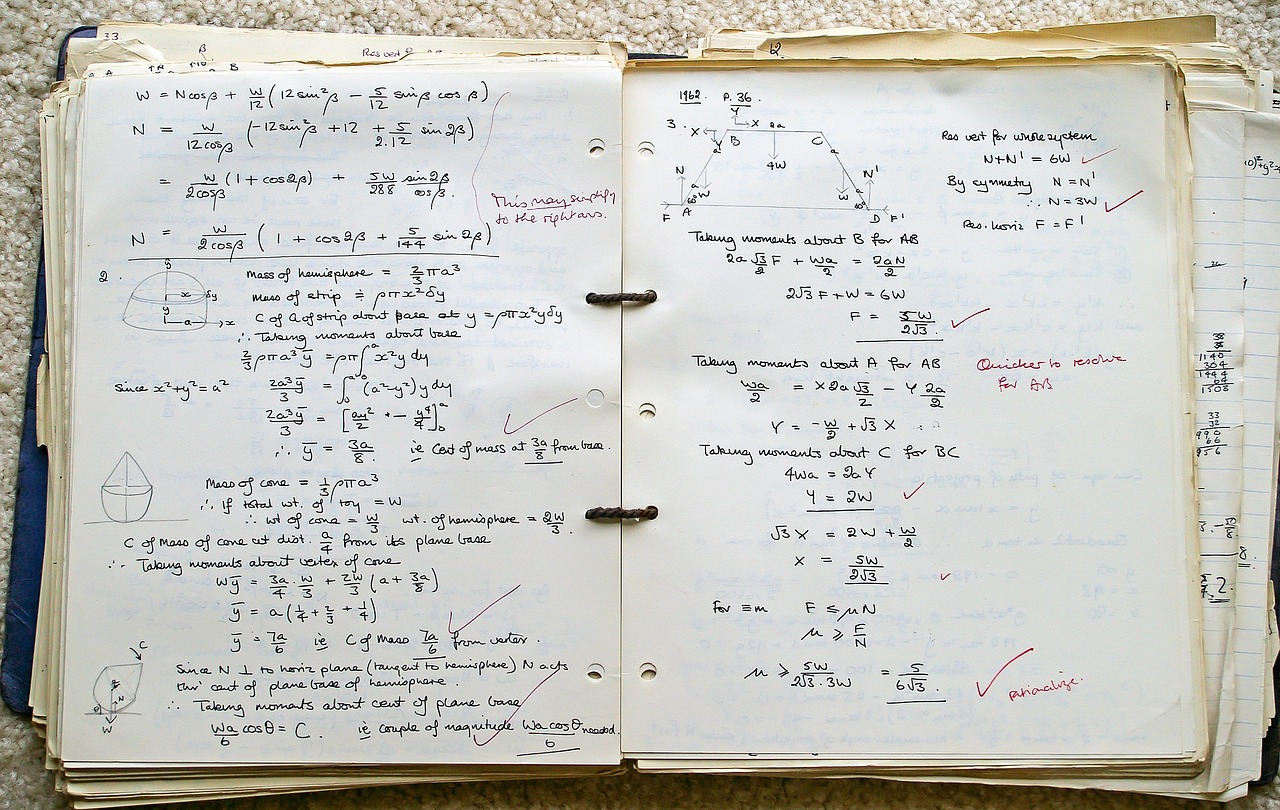 33.
β
Res vert
A B
W = Ncosβ + W/12 (12sin²β − 5/12 sinβ cosβ)
N = W/12cosβ (−12sin²β + 12 + 5/2.12 sin2β)
= W/2cosβ (1 + cos2β) + 5W/288 sin2β/cosβ.
This may simplify
to the right ans.
N = W/2cosβ (1 + cos2β + 5/144 sin2β)
2.
y
x δy
y
a x
Mass of hemisphere = 2/3 πa³
Mass of strip ≑ ρπx²δy
C of G of strip about base at y = ρπx²yδy
∴ Taking moments about base
2/3 ρπa³ȳ = ρπ∫₀ᵃ x²y dy
Since x²+y²=a² 2a³ȳ/3 = ∫₀ᵃ (a²−y²)y dy
2a³ȳ/3 = [ay²/2 − y⁴/4]₀ᵃ
∴ ȳ = 3a/8 ie Cent of mass at 3a/8 from base.
Mass of cone = 1/3 ρπa³
∴ If total wt. of toy = W
∴ wt of cone = W/3 wt. of hemisphere = 2W/3.
C of Mass of cone at dist. a/4 from its plane base
∴ Taking moments about vertex of cone
Wȳ = 3a/4 · W/3 + 2W/3 (a + 3a/8)
ȳ = a(1/4 + 2/3 + 1/4)
ȳ = 7a/6 ie C of Mass 7a/6 from vertex.
C
N
θ
W
Since N ⊥ to horiz plane (tangent to hemisphere) N acts
thro' cent of plane base of hemisphere.
∴ Taking moments about cent of plane base
Wa/6 cosθ = C. ie couple of magnitude Wa cosθ/6 needed.
12.
1962. P. 36.
Y
3. X X 2a
Y B C
a a
4W
N N'
a a
W W
60° 60°
F A D F'
Res vert for whole system
N+N' = 6W
By symmetry N = N'
∴ N = 3W
Res. horiz F = F'
Taking moments about B for AB
2a √3/2 F + Wa/2 = 2aN/2
2√3 F + W = 6W
F = 5W/2√3.
Taking moments about A for AB
Quicker to resolve
for AB
Wa/2 = X 2a √3/2 − Y 2a/2
Y = −W/2 + √3 X
Taking moments about C for BC
4Wa = 2aY
Y = 2W
√3 X = 2W + W/2
X = 5W/2√3
For ≡m F ≤ μN
μ ≥ F/N
μ ≥ 5W/2√3·3W = 5/6√3.
rationalize.
38
38
1140
304
1444
64
1508
33
32
990
66
956
8.
2.